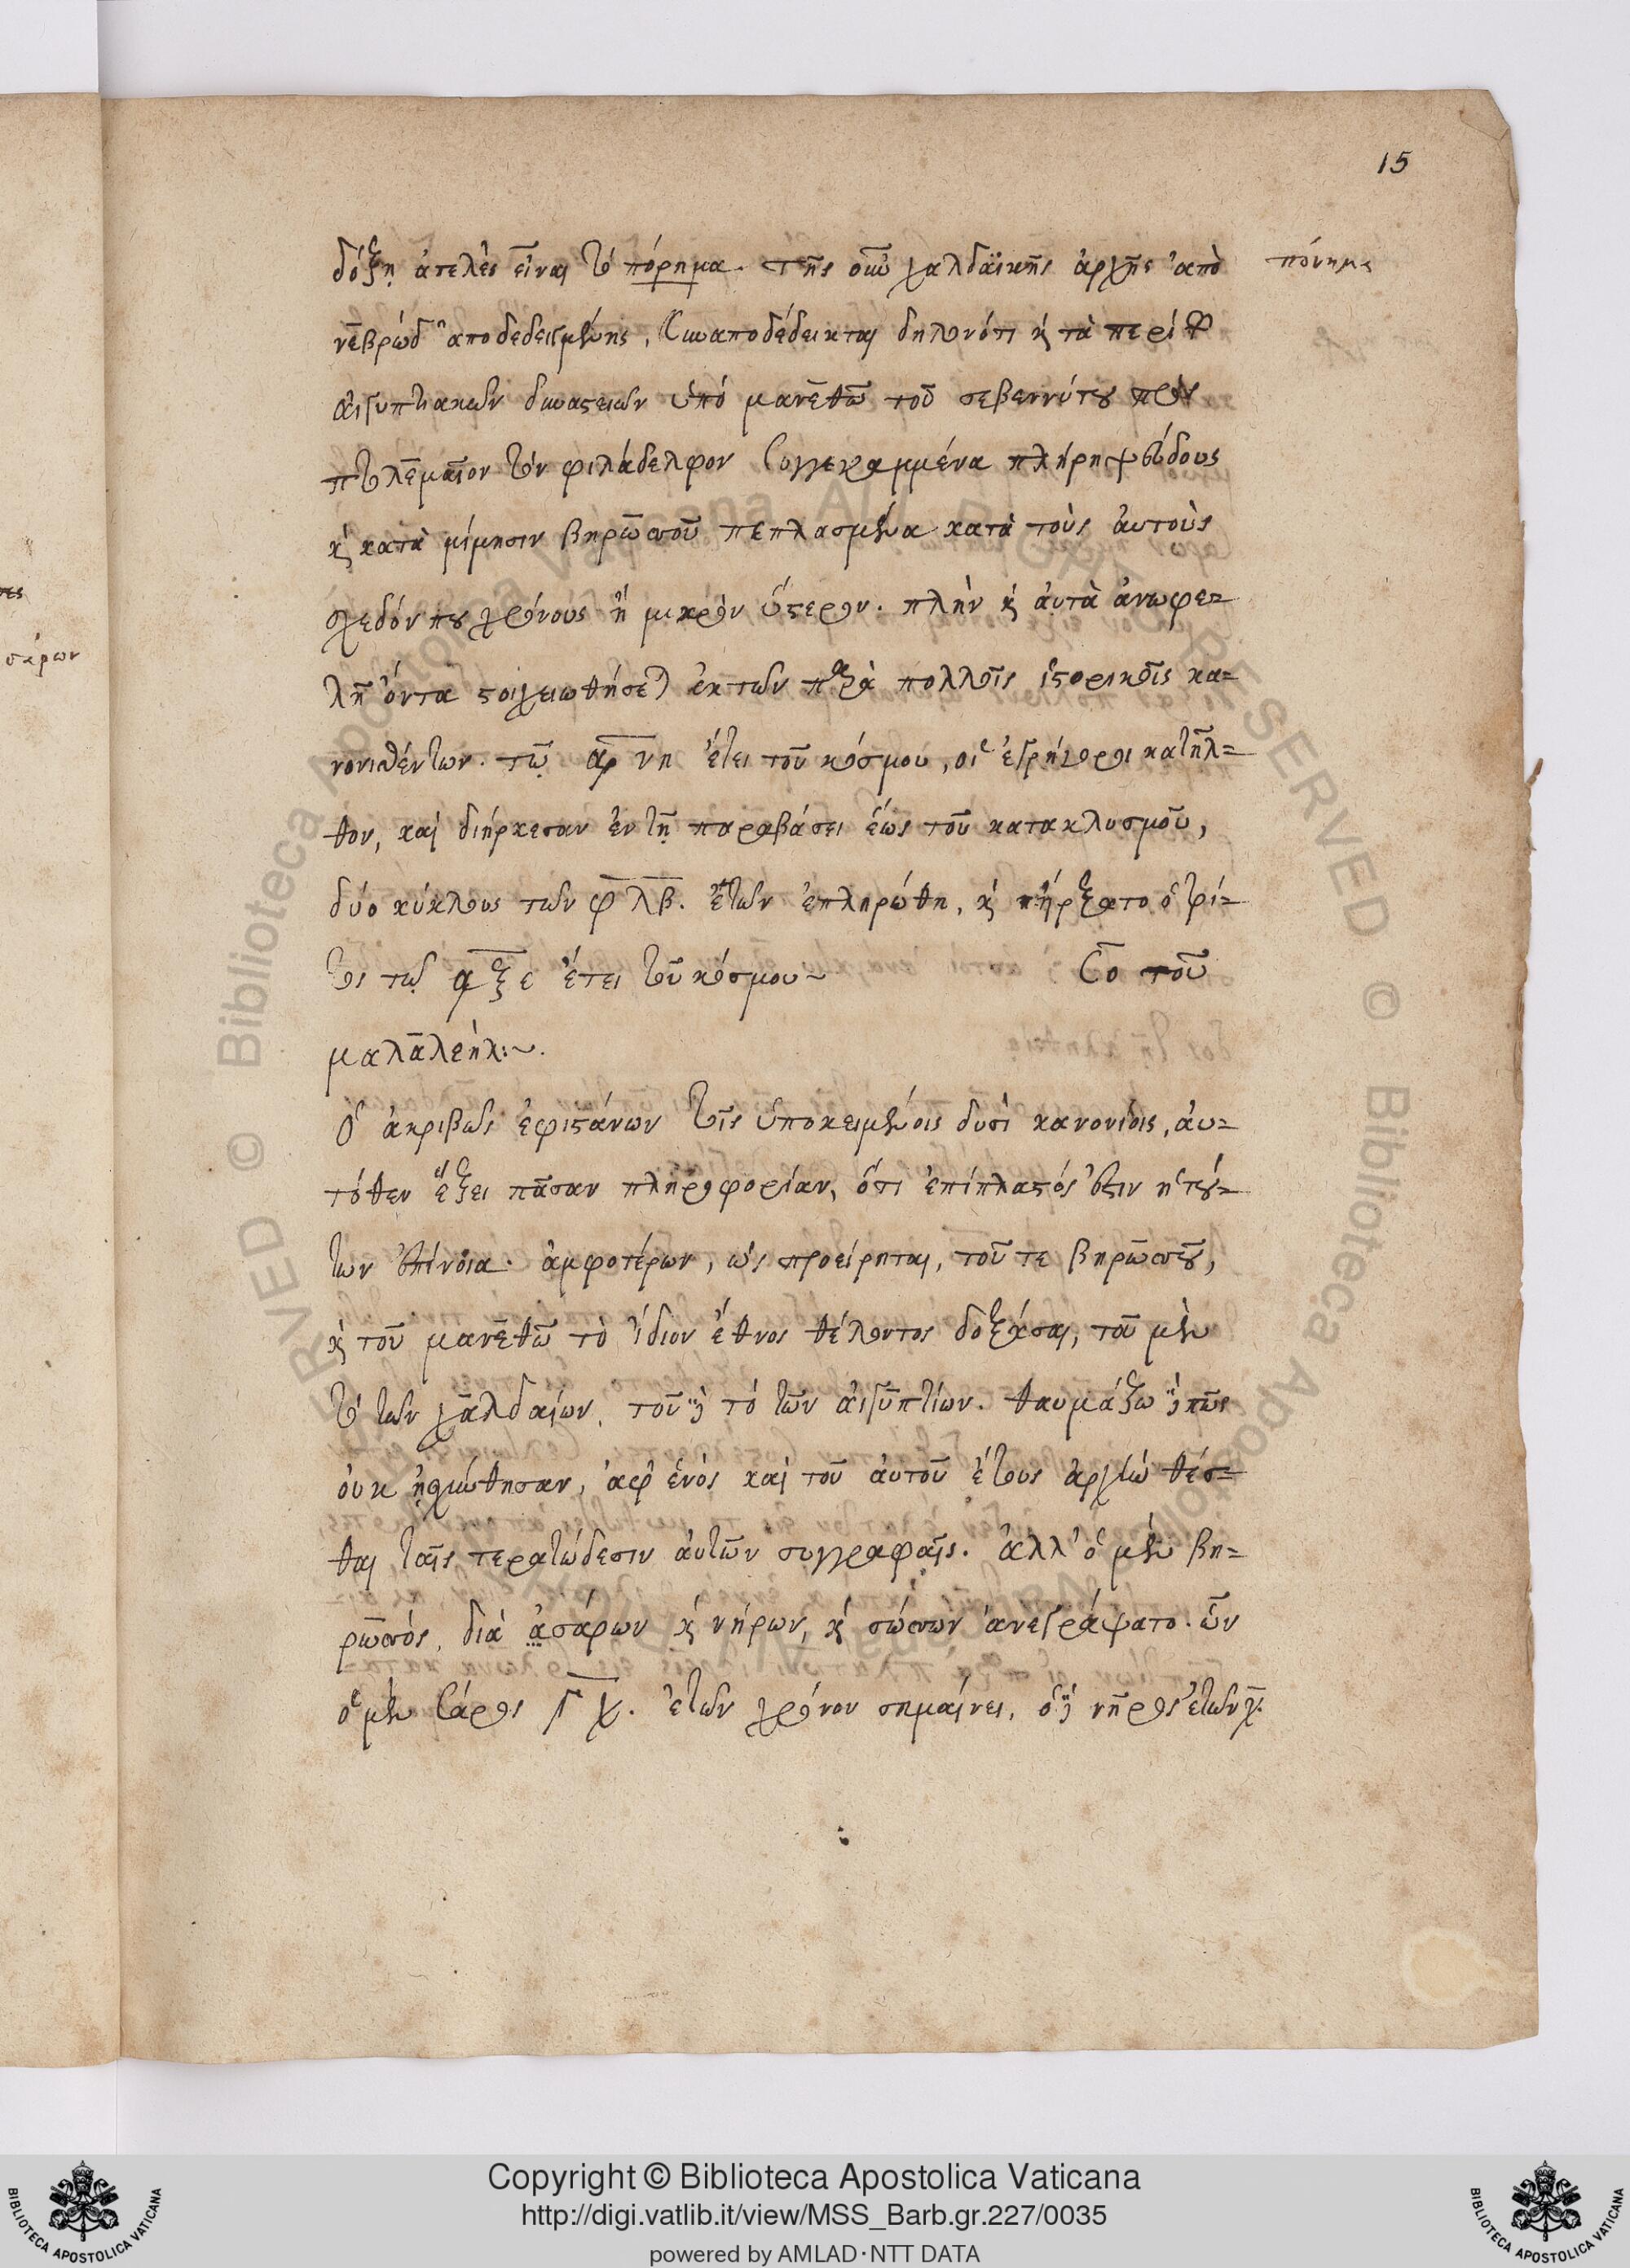 15
δόξῃ ἀτελὲς εἶναι τὸ πόρημα. τῆς οὖν χαλδαϊκῆς ἀρχῆς ἀπὸ
πόνημα
νεβρὼδ ἀποδεδειγμένης, συναποδέδεικται δηλονότι κ τὰ περὶ τῶν
αἰγυπτιακῶν δυναστειῶν ὑπὸ μανεθῶ τοῦ σεβεννύτου πρὸς
πτολεμαῖον τὸν φιλάδελφον συγγεγραμμένα πλήρη ψεύδους
κ κατὰ μίμησιν βηρωσσοῦ πεπλασμένα κατὰ τοὺς αὐτοὺς
σχεδόν που χρόνους ἢ μικρὸν ὕστερον. πλὴν κ αὐτὰ ἀνωφε=
λῆ ὄντα στοιχειωθήσεται ἐκ τῶν παρὰ πολλοῖς ἱστορικοῖς κα=
νονισθέντων. τῷ ͵α νη ἔτει τοῦ κόσμου, οἱ ἐγρήγοροι κατῆλ=
θον, καὶ διήρκεσαν ἐν τῇ παραβάσει ἕως τοῦ κατακλυσμοῦ,
δύο κύκλους τῶν φλβ. ἐτῶν ἐπληρώθη, κ ἤρξατο ὁ τρί=
τος τῷ ͵αξε ἔτει τοῦ κόσμου~ Ϛο τοῦ
μαλαλεὴλ:~.
Ὁ ἀκριβῶς ἐφιστάνων τοῖς ὑποκειμένοις δυσὶ κανονίοις, αὐ=
τόθεν ἕξει πᾶσαν πληροφορίαν, ὅτι ἐπίπλαστός ἐστιν ἡ τού=
των ἐπίνοια. ἀμφοτέρων, ὡς προείρηται, τοῦ τε βηρωσσοῦ,
κ τοῦ μανεθῶ τὸ ἴδιον ἔθνος θέλοντος δοξάσαι, τοῦ μὲν
τὸ τῶν χαλδαίων, τοῦ δὲ τὸ τῶν αἰγυπτίων. θαυμάξω δὲ πῶς
οὐκ ᾐσχύνθησαν, ἀφ' ἑνὸς καὶ τοῦ αὐτοῦ ἔτους ἀρχὴν θέσ=
θαι ταῖς τερατώδεσιν αὐτῶν συγγραφαῖς. ἀλλ' ὁ μὲν βη=
ρωσσός, διὰ ἀσάρων κ νήρων, κ σώσσων ἀνεγράψατο. ὧν
ὁ μὲν σάρος ͵γχ. ἐτῶν χρόνον σημαίνει, ὁ δὲ νῆρος ἐτῶν χ.
σάρων
Copyright © Biblioteca Apostolica Vaticana
http://digi.vatlib.it/view/MSS_Barb.gr.227/0035
powered by AMLAD·NTT DATA